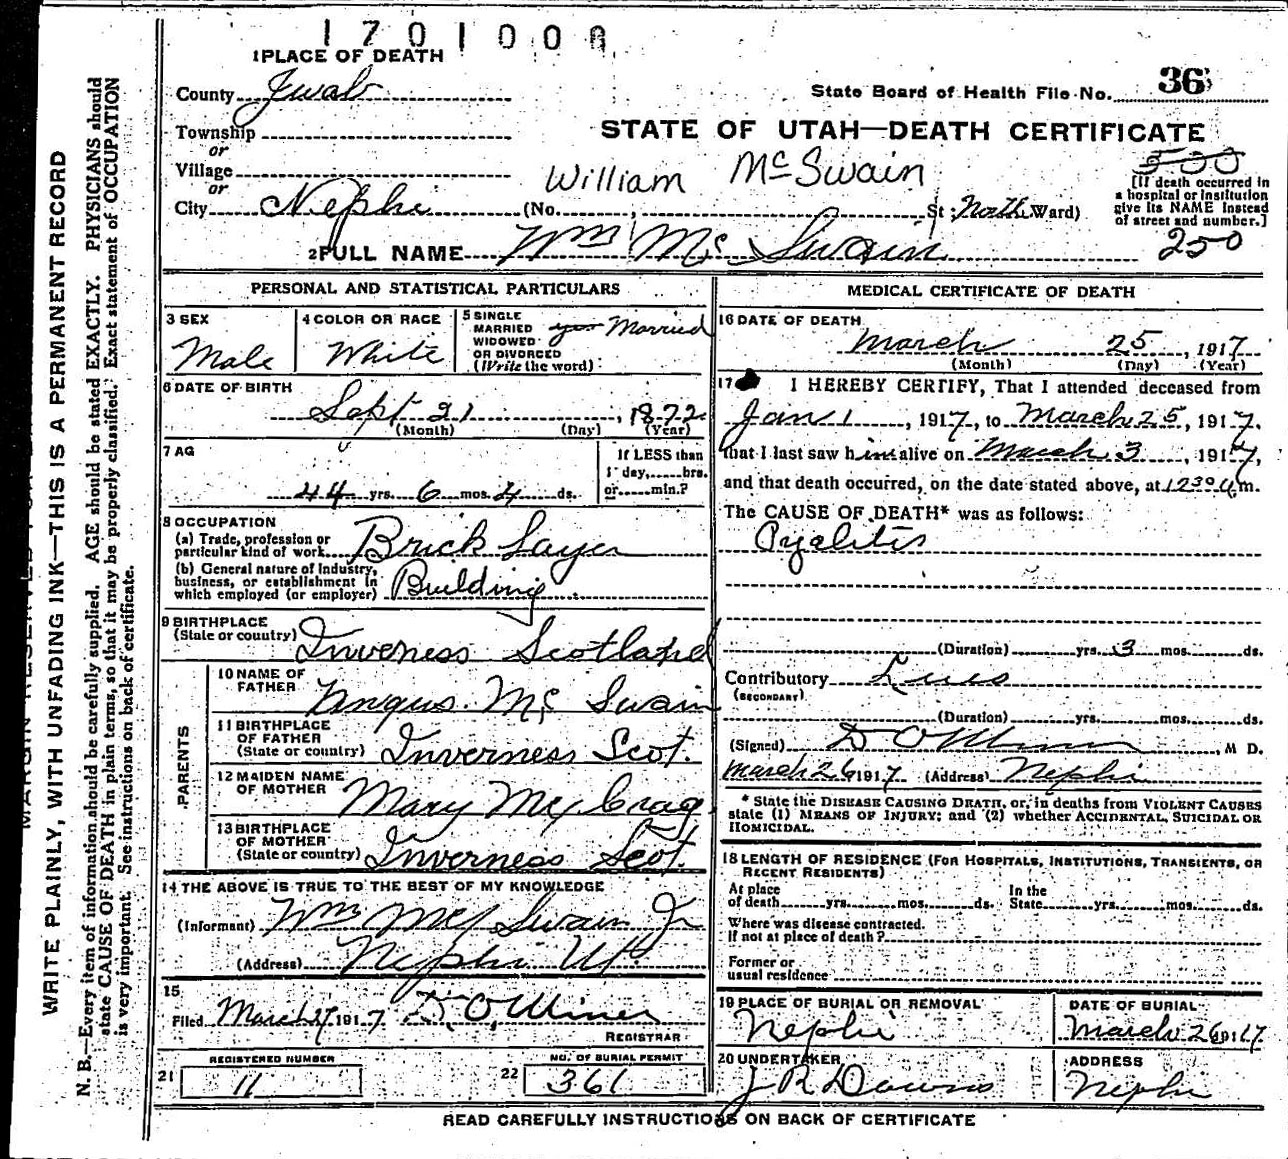 1701008
1 PLACE OF DEATH
County Juab
State Board of Health File No. 36
Township
or
STATE OF UTAH—DEATH CERTIFICATE
Village
or
William McSwain
500
[If death occurred in a hospital or institution give its NAME instead of street and number.]
City Nephi (No. , St.; North Ward)
250
2 FULL NAME Wm Mc Swain
PERSONAL AND STATISTICAL PARTICULARS
3 SEX
Male
4 COLOR OR RACE
White
5 SINGLE
MARRIED
WIDOWED
OR DIVORCED
(Write the word)
yes Married
6 DATE OF BIRTH
Sept 21, 1872
(Month) (Day) (Year)
7 AG
44 yrs. 6 mos. 4 ds.
If LESS than
1 day, hrs.
or min.?
8 OCCUPATION
(a) Trade, profession or
particular kind of work Brick Layer
(b) General nature of industry,
business, or establishment in
which employed (or employer) Building
9 BIRTHPLACE
(State or country) Inverness Scotland
PARENTS
10 NAME OF
FATHER Angus Mc Swain
11 BIRTHPLACE
OF FATHER
(State or country) Inverness Scot.
12 MAIDEN NAME
OF MOTHER Mary
13 BIRTHPLACE
OF MOTHER
(State or country) Inverness Scot.
14 THE ABOVE IS TRUE TO THE BEST OF MY KNOWLEDGE
(Informant) Wm Mc Swain Jr
(Address) Nephi Ut
15
Filed March 27 1917 D. O. Miner
REGISTRAR
REGISTERED NUMBER
21 11
NO. OF BURIAL PERMIT
22 361
MEDICAL CERTIFICATE OF DEATH
16 DATE OF DEATH
March 25, 1917
(Month) (Day) (Year)
17 I HEREBY CERTIFY, That I attended deceased from
Jan 1, 1917, to March 25, 1917,
that I last saw him alive on March 3, 1917,
and that death occurred, on the date stated above, at 12 30 a.m.
The CAUSE OF DEATH* was as follows:
Pyelitis
(Duration) yrs. 3 mos. ds.
Contributory Lues
(SECONDARY)
(Duration) yrs. mos. ds.
(Signed) D O Miner, M D.
March 26 1917 (Address) Nephi
* State the DISEASE CAUSING DEATH, or, in deaths from VIOLENT CAUSES
state (1) MEANS OF INJURY; and (2) whether ACCIDENTAL, SUICIDAL OR
HOMICIDAL.
18 LENGTH OF RESIDENCE (FOR HOSPITALS, INSTITUTIONS, TRANSIENTS, OR
RECENT RESIDENTS)
At place
of death yrs. mos. ds.
In the
State yrs. mos. ds.
Where was disease contracted.
If not at place of death?
Former or
usual residence
19 PLACE OF BURIAL OR REMOVAL
Nephi
DATE OF BURIAL
March 26 1917
20 UNDERTAKER
J R Downs
ADDRESS
Nephi
READ CAREFULLY INSTRUCTIONS ON BACK OF CERTIFICATE
WRITE PLAINLY, WITH UNFADING INK—THIS IS A PERMANENT RECORD
N. B.—Every item of information should be carefully supplied. AGE should be stated EXACTLY. PHYSICIANS should
state CAUSE OF DEATH in plain terms, so that it may be properly classified. Exact statement of OCCUPATION
is very important. See instructions on back of certificate.